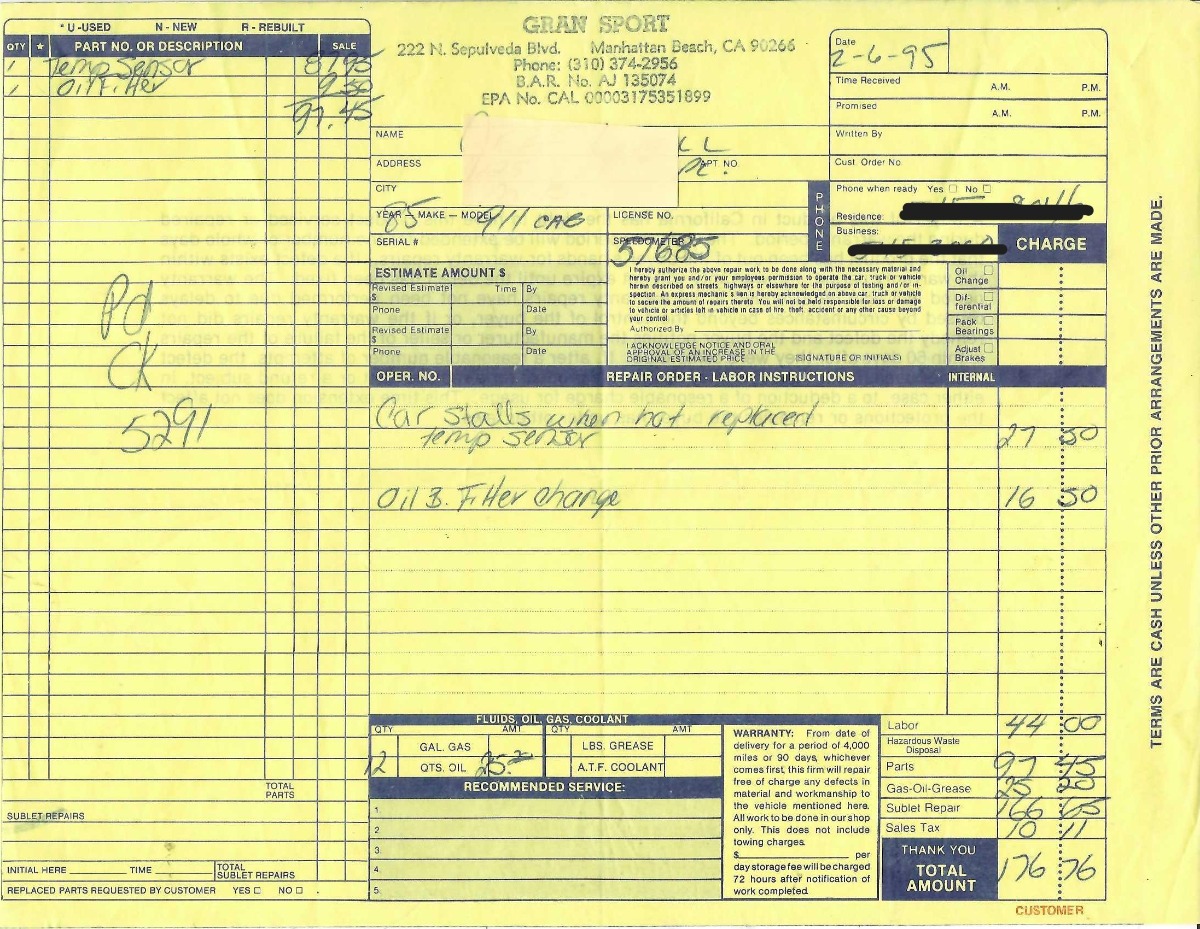 * U-USED N - NEW R - REBUILT
QTY * PART NO. OR DESCRIPTION SALE
1 Temp Sensor 87.95
1 Oil Filter 9.50
97.45
GRAN SPORT
222 N. Sepulveda Blvd. Manhattan Beach, CA 90266
Phone: (310) 374-2956
B.A.R. No. AJ 135074
EPA No. CAL 00003175351899
Date
2-6-95
Time Received A.M. P.M.
Promised A.M. P.M.
Written By
Cust. Order No.
NAME LL
ADDRESS APT NO.
CITY
Phone when ready Yes No
PHONE
Residence:
Business:
YEAR — MAKE — MODEL LICENSE NO.
85 911 CAB
SERIAL # SPEEDOMETER
51685
CHARGE
ESTIMATE AMOUNT $
Revised Estimate Time By
$
Phone Date
Revised Estimate By
$
Phone Date
I hereby authorize the above repair work to be done along with the necessary material and
hereby grant you and/or your employees permission to operate the car, truck or vehicle
herein described on streets, highways or elsewhere for the purpose of testing and/or in-
spection. An express mechanic's lien is hereby acknowledged on above car, truck or vehicle
to secure the amount of repairs thereto. You will not be held responsible for loss or damage
to vehicle or articles left in vehicle in case of fire, theft, accident or any other cause beyond
your control.
Authorized By
I ACKNOWLEDGE NOTICE AND ORAL
APPROVAL OF AN INCREASE IN THE
ORIGINAL ESTIMATED PRICE (SIGNATURE OR INITIALS)
Oil
Change
Dif-
ferential
Pack
Bearings
Adjust
Brakes
Pd
CK
5291
OPER. NO. REPAIR ORDER - LABOR INSTRUCTIONS INTERNAL
Car stalls when hot replaced
temp sensor 27 50
Oil & Filter change 16 50
FLUIDS, OIL, GAS, COOLANT
QTY AMT. QTY AMT
GAL. GAS LBS. GREASE
12 QTS. OIL 25.20 A.T.F. COOLANT
RECOMMENDED SERVICE:
1.
2.
3.
4.
5.
WARRANTY: From date of
delivery for a period of 4,000
miles or 90 days, whichever
comes first, this firm will repair
free of charge any defects in
material and workmanship to
the vehicle mentioned here.
All work to be done in our shop
only. This does not include
towing charges.
$ per
day storage fee will be charged
72 hours after notification of
work completed.
Labor 44 00
Hazardous Waste
Disposal
Parts 97 45
Gas-Oil-Grease 25 20
Sublet Repair 166 65
Sales Tax 10 11
THANK YOU
TOTAL
AMOUNT 176 76
TOTAL
PARTS
SUBLET REPAIRS
INITIAL HERE TIME TOTAL
SUBLET REPAIRS
REPLACED PARTS REQUESTED BY CUSTOMER YES NO
CUSTOMER
TERMS ARE CASH UNLESS OTHER PRIOR ARRANGEMENTS ARE MADE.